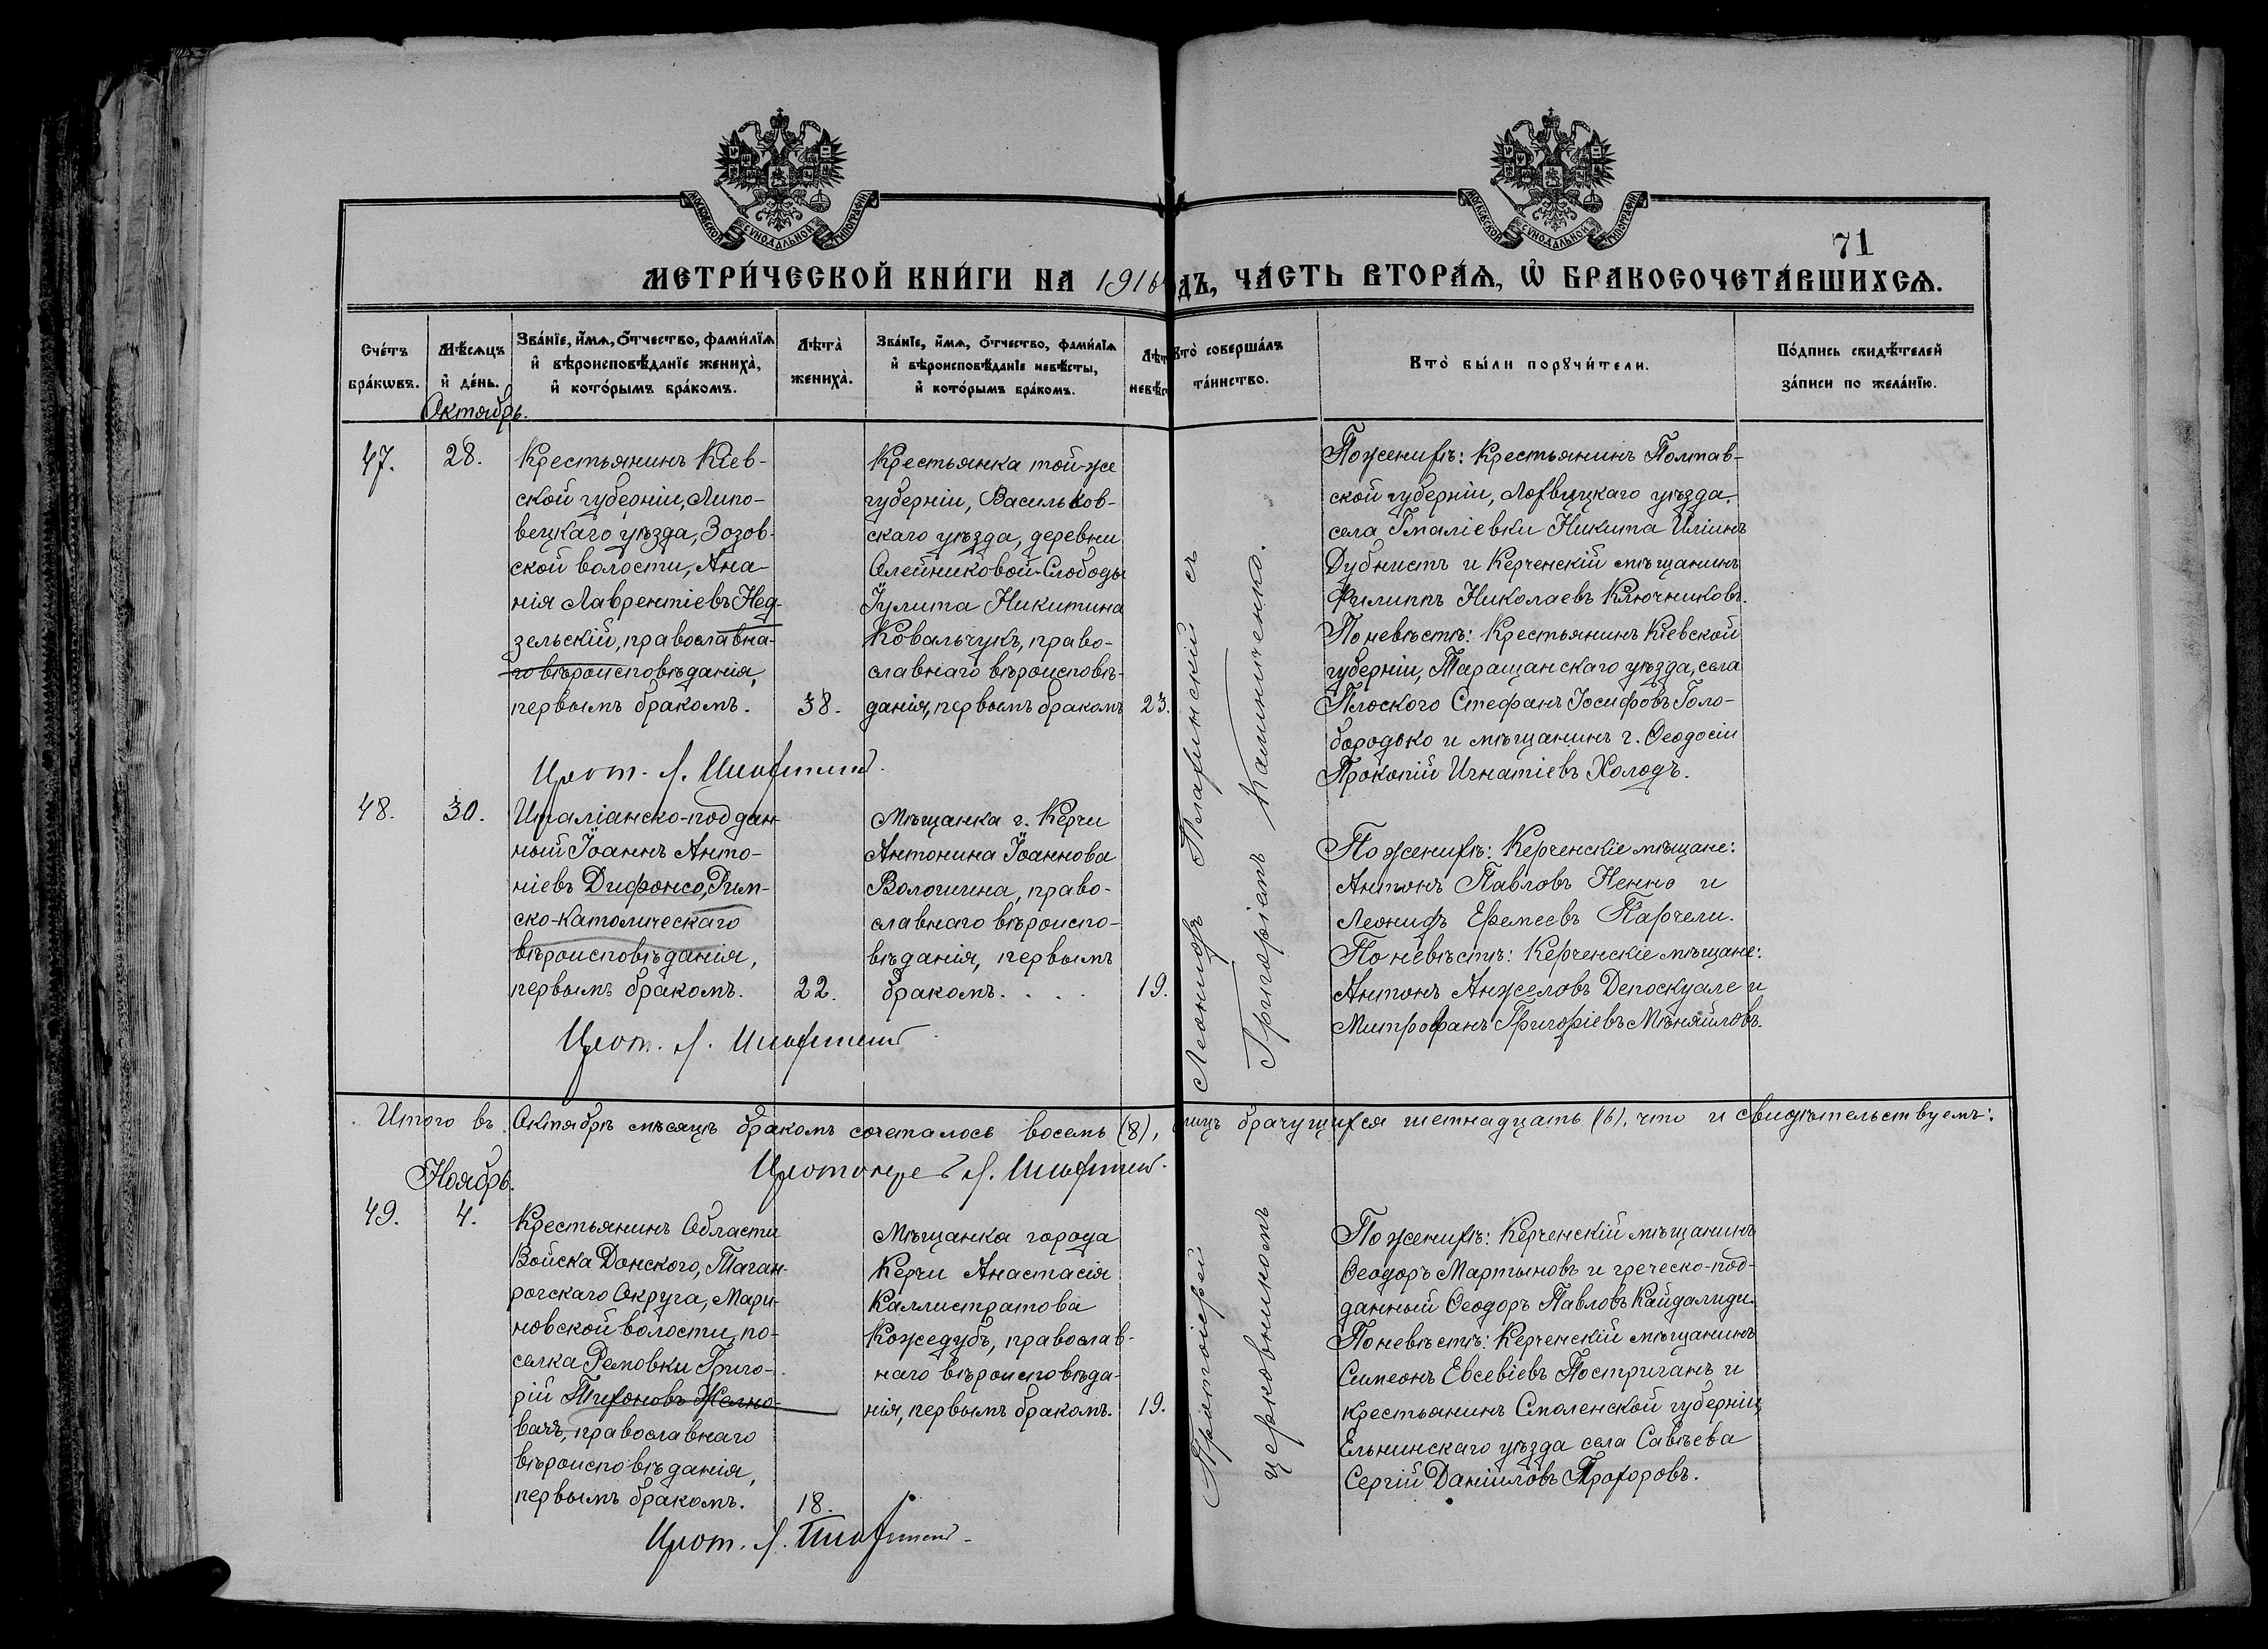 МОСКОВСКОЙ СѴНОДАЛЬНОЙ ТИПОГРАФІИ
МОСКОВСКОЙ СѴНОДАЛЬНОЙ ТИПОГРАФІИ
71
МЕТРИ́ЧЕСКОЙ КНИ́ГИ НА 1916 ДЪ, ЧА́СТЬ ВТОРА́Ѧ, Ѽ БРАКОСОЧЕТА́ВШИХСѦ.
Сче́тъ бра́кѡвъ.
Мѣ́сѧцъ и҆ де́нь.
Зва́нїе, и҆́мѧ, ѻ҆́тчество, фами́лїѧ и҆ вѣроисповѣ́данїе жениха̀, и҆ кото́рымъ бра́комъ.
Лѣта̀ жениха̀.
Зва́нїе, и҆́мѧ, ѻ҆́тчество, фами́лїѧ и҆ вѣроисповѣ́данїе невѣ́сты, и҆ кото́рымъ бра́комъ.
Лѣт невѣс
Кто̀ соверша́лъ та́инство.
Кто̀ бы́ли порꙋчи́тели.
По́дпись свидѣ́телей за́писи по жела́нїю.
Октябрь.
47.
28.
Крестьянинъ Кіев-
ской губерніи, Липо-
вецкаго уѣзда, Зозов-
ской волости, Ана-
нія Лаврентіевъ Нед-
зельскій, православна-
го вѣроисповѣданія,
первымъ бракомъ.
38.
Крестьянка той-же
губерніи, Васильков-
скаго уѣзда, деревни
Олейниковой-Слободы
Іулита Никитина
Ковальчукъ, право-
славнаго вѣроисповѣ-
данія, первымъ бракомъ
23.
Леонидъ Планинскій съ
Григоріемъ Калиниченко.
По женихѣ: Крестьянинъ Полтав-
ской губерніи, Лохвицкаго уѣзда,
села Гмаліевки Никита Иліинъ
Дубнистъ и Керченскій мѣщанинъ
Филиппъ Николаевъ Ключниковъ.
По невѣстѣ: Крестьянинъ Кіевской
губерніи, Таращанскаго уѣзда, села
Плоского Стефанъ Іосифовъ Голо-
бородько и мѣщанинъ г. Ѳеодосіи
Прокопій Игнатіевъ Холодъ.
Прот. Л.
48.
30.
Италіанско-поддан-
ный Іоаннъ Анто-
ніевъ Дифонсо, Рим-
ско-Католическаго
вѣроисповѣданія,
первымъ бракомъ.
22.
Мѣщанка г. Керчи
Антонина Іоаннова
Вологина, право-
славнаго вѣроиспо-
вѣданія, первымъ
бракомъ. . . .
19.
По женихѣ: Керченскіе мѣщане:
Антонъ Павловъ Ненно и
Леонидъ Еремеевъ Парчели.
По невѣстѣ: Керченскіе мѣщане:
Антонъ Анжеловъ Депоскуале и
Митрофанъ Григоріевъ Мѣняйловъ.
Прот. Л.
Итого въ Октябрѣ мѣсяцѣ бракомъ сочеталось восемь (8), лицъ брачущихся шетнадцать (16), что и свидѣтельствуемъ:
Протоиерей Л.
Ноябрь.
49.
4.
Крестьянинъ Области
Войска Донского, Таган-
рогскаго Округа, Мари-
новской волости, по-
селка Ремовки Григо-
рій Тихоновъ Желно-
вачъ, православнаго
вѣроисповѣданія,
первымъ бракомъ.
18.
Мѣщанка города
Керчи Анастасія
Каллистратова
Кожедубъ, православ-
наго вѣроисповѣда-
нія, первымъ бракомъ.
19.
Протоіерей
церковникомъ
По женихѣ: Керченскій мѣщанинъ
Ѳеодоръ Мартыновъ и греческо-под-
данный Ѳеодоръ Павловъ Кайдалиди.
По невѣстѣ: Керченскій мѣщанинъ
Симеонъ Евсевіевъ Постриганъ и
крестьянинъ Смоленской губерніи,
Ельнинскаго уѣзда села Савѣева
Сергій Даніиловъ Прохоровъ.
Прот. Л.